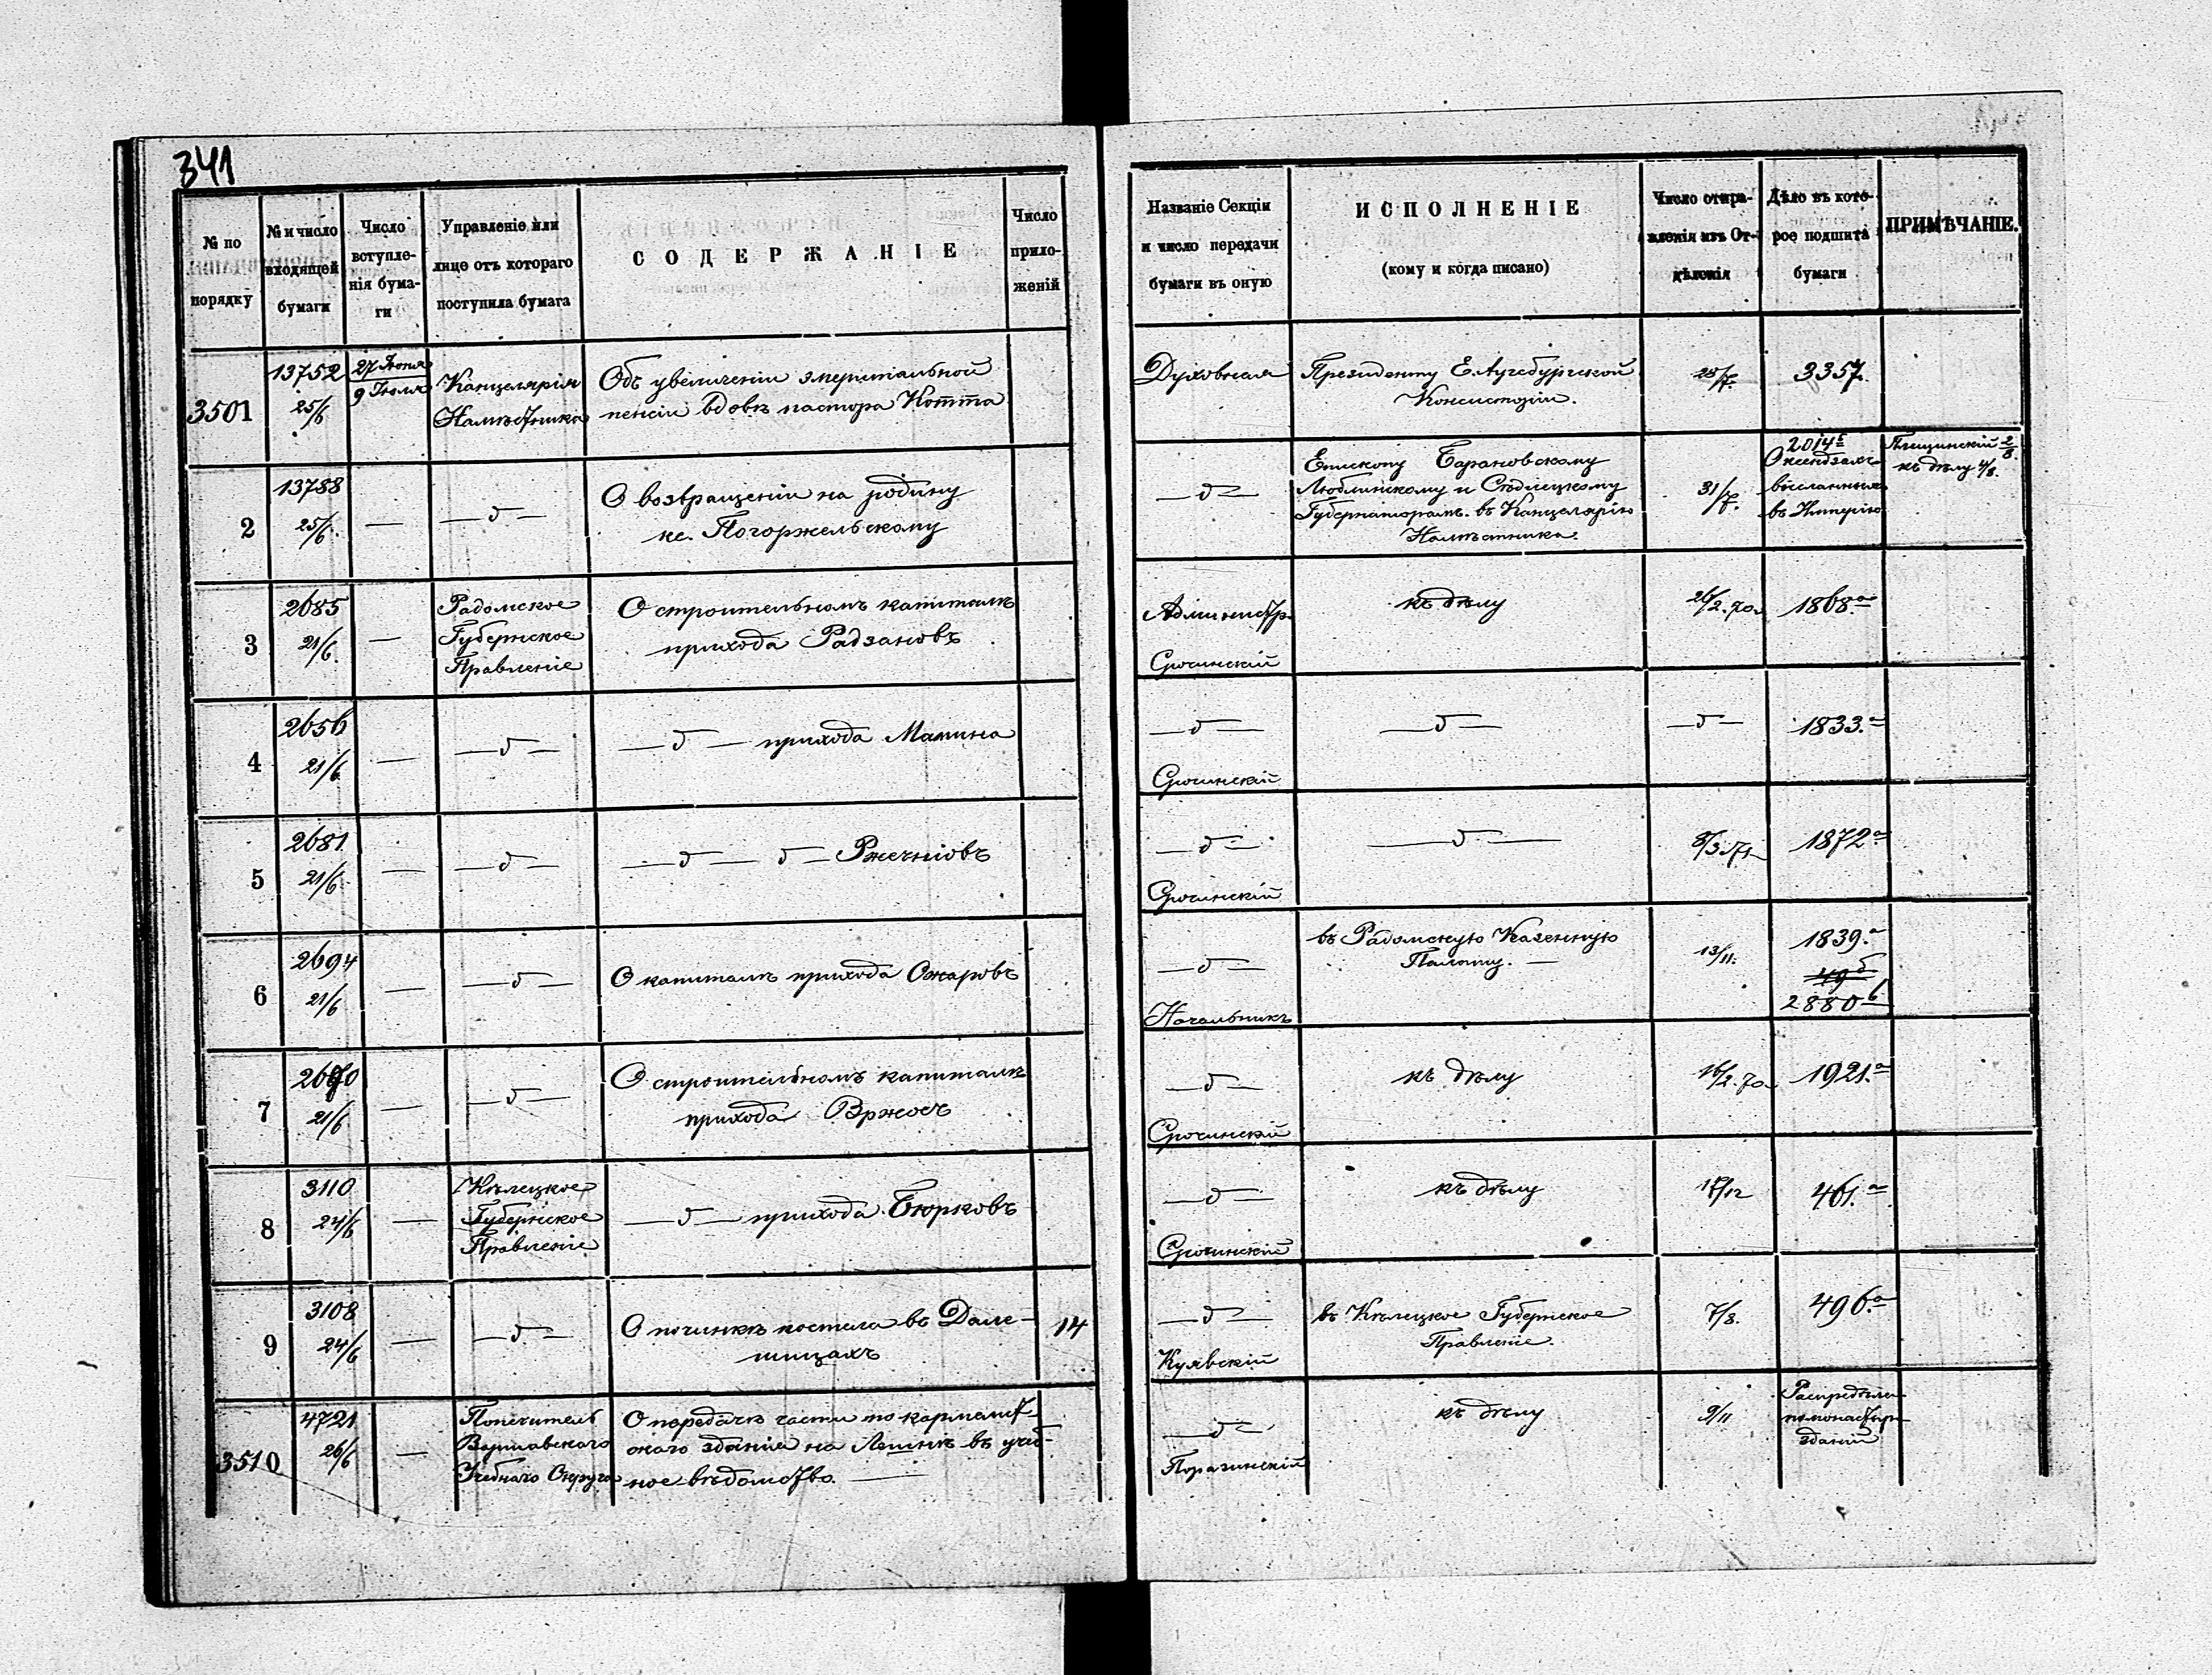 341
№ по порядку
№ и число входящей бумаги
Число вступле-
нія бума-
ги
Управленіе или
лице отъ котораго
поступила бумага
СОДЕРЖАНІЕ
Число
прило-
женій
Названіе Секціи
и число передачи
бумаги въ оную
ИСПОЛНЕНІЕ
(кому и когда писано)
Число отпра-
вленія изъ От-
дѣленія
Дѣло въ кото-
рое подшита
бумаги
ПРИМѢЧАНІЕ.
3501
13752
25/6
27 Іюня
9 Іюля
Канцелярія
Намѣстника
Объ увеличеніи эмеритальной
пенсіи вдовѣ пастора Котта
Духовная
Президенту Е. Аугсбургской
Консисторіи.
28/7.
3357.
2
13788
25/6.
—
— д —
О возвращеніи на родину
кс. Погоржельскому
— д —
Епископу Барановскому
Люблинскому и Сѣдлецкому
Губернаторамъ. въ Канцелярію
Намѣстника.
31/7.
2014 б
О ксендзахъ
высланныхъ
въ Имперію
2/8
къ дѣлу 4/8.
3
2685
21/6.
—
Радомское
Губернское
Правленіе
О строительномъ капиталѣ
прихода Радзановъ
Администр.
Срочинскій
къ дѣлу
26/2. 70
1868 а
4
2656
21/6
—
— д —
— д — прихода Манина
— д —
Срочинскій
— д —
— д —
1833. а
5
2681
21/6
—
— д —
— д — д — Ржечніовъ
— д —
Срочинскій
— д —
8/3. 71
1872 а
6
2694
21/6
—
— д —
О капиталѣ прихода Ожаровъ
— д —
Начальникъ
въ Радомскую Казенную
Палату. —
13/11.
1839. а
49 б
2880 б
7
2670
21/6
—
— д —
О строительномъ капиталѣ
прихода Вржосъ
— д —
Срочинскій
къ дѣлу
16/2. 70
1921. а
8
3110
24/6
—
Кѣлецкое
Губернское
Правленіе
— д — прихода Бюрковъ
— д —
Срочинскій
къ дѣлу
17/12
461. а
9
3108
24/6
—
— д —
О починкѣ костела въ Дале-
шицахъ
14
— д —
Куявскій
въ Кѣлецкое Губернское
Правленіе.
7/8.
496. а
3510
4721
26/6
—
Попечитель
Варшавскаго
Учебнаго Округа
О передачѣ части по кармелит-
скаго зданія на Лешнѣ въ учеб-
ное вѣдомство. —
— д —
Поразинскій
къ дѣлу
9/11
Распредѣле
помонастыр
зданій